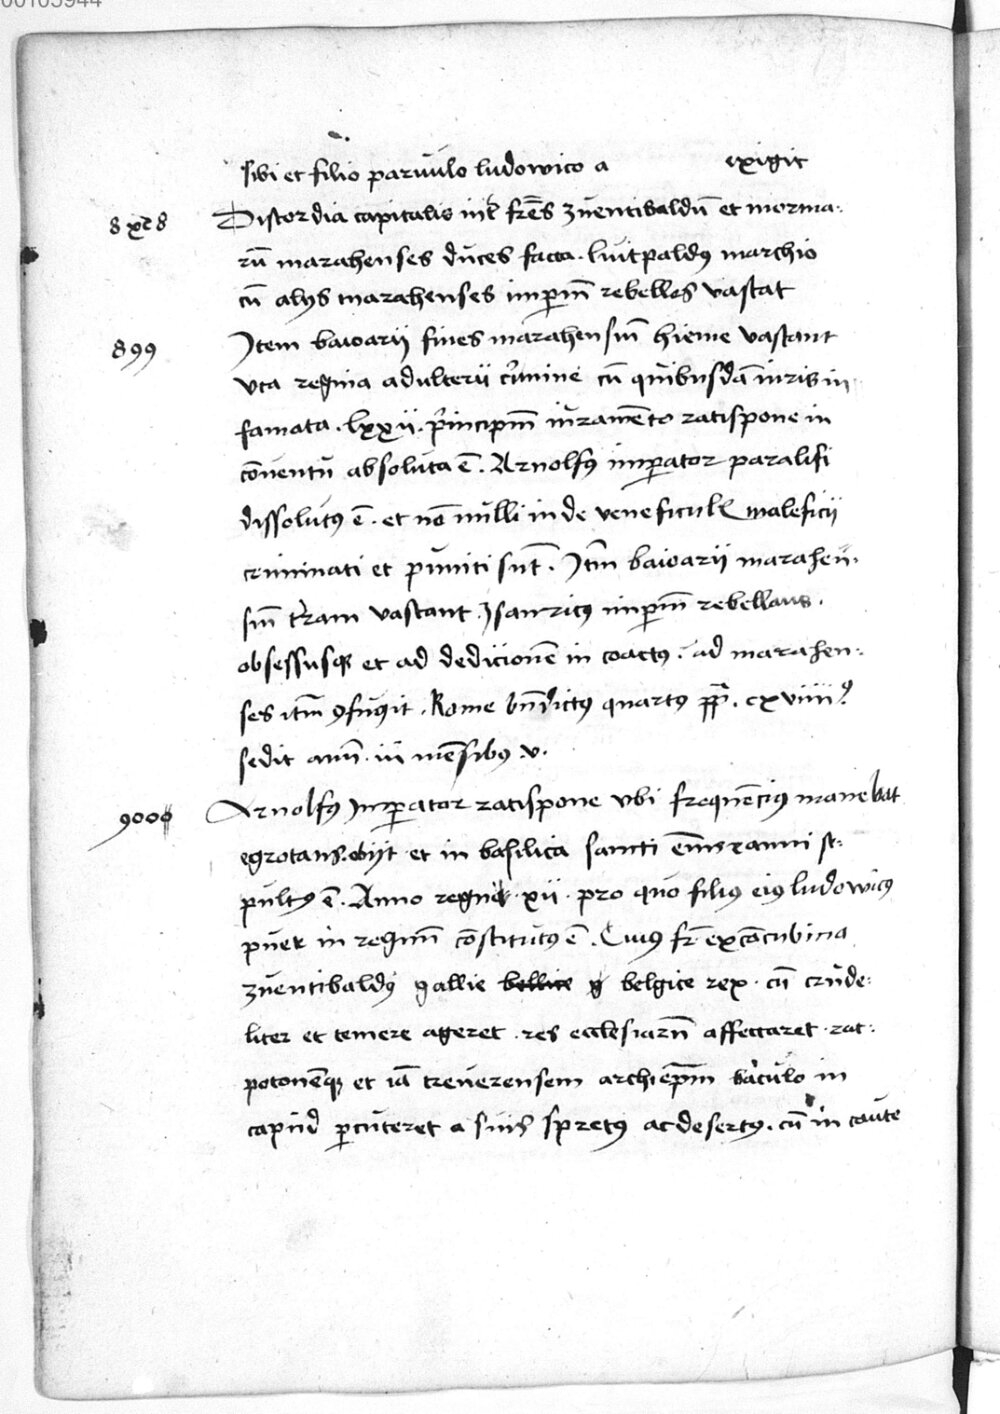 00103944
sibi et filio parvulo ludowico a exigit
8xc8 Discordia capitalis int̄ fr̄es zuentibaldū et morma-
rū marahenses duces facta. luitpaldꝰ marchio
cū alijs marahenses imꝑiū rebelles vastat
899 Item baioarij fines marahensiū hieme vastant
vta regina adulterii crimine cū quibusdā in ris in-
famata. lxxii. principū iuramēto ratispone in
cōventu absoluta ē. Arnolfꝰ imꝑator paralisi
dissolutꝰ ē. et nō nulli inde veneficii maleficij
criminati et puniti sūt. Itm̄ baioarii marahen-
siū terram vastant. Isanricꝰ imꝑiū rebellans.
obsessusqꝫ et ad dedicionē in coactꝰ. ad marahen-
ses itm̄ ꝯfugit. Rome bn̄dictꝰ quartꝰ pp̄. cxviiiiꝰ
sedit ann̄. iii mēsibꝰ v.
900 Arnolfꝰ Imꝑator ratispone vbi frequēciꝰ manebat
egrotans. obijt et in basilica sancti em̄eranni se-
pultꝰ ē. Anno regni xii. pro quo filiꝰ eiꝰ ludowicꝰ
puer in regnū cōstitutꝰ ē. Cuiꝰ fr̄ ex cōcubina
zuentibaldꝰ gallie bellice g belgice rex. cū crude-
liter et temere ageret. res ecclesiarū affectaret. rat-
potonēqꝫ et iā treuerensem archiep̄m baculo in
capud ꝑcuteret a suis spretꝰ ac desertꝰ. cū in caute